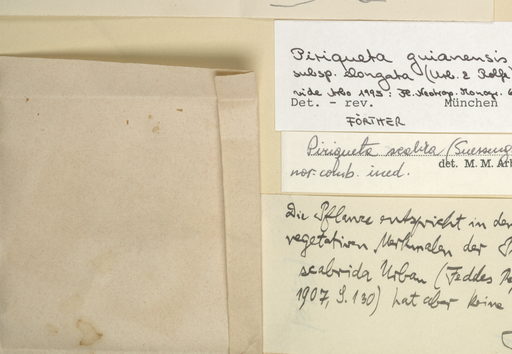 Piriqueta guianensis
subsp. elongata (Urb. & Rolfe)
vide Arbo 1995: Fl. Neotrop. Monogr. 6
Det. - rev. München
FÖRTHER
Piriqueta scabra (Suesseng
det. M. M. Arb
nov. comb. ined.
Die Pflanze entspricht in den
vegetativen Merkmalen der P
scabrida Urban (Feddes Re
1907, S. 130) hat aber keine